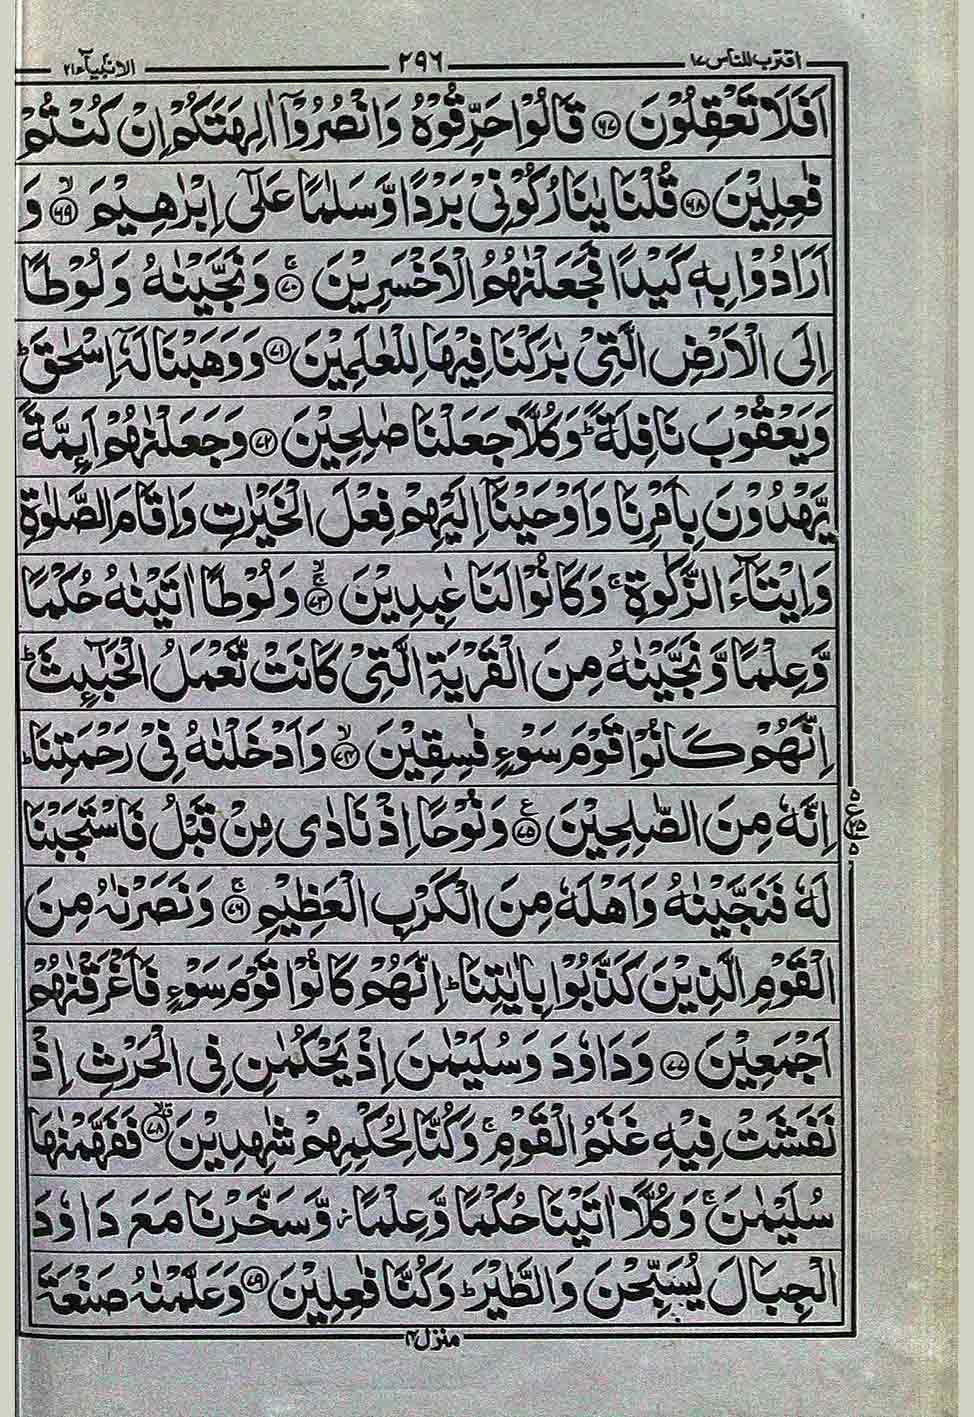 اقترب للناس ١٧ ٢٩٦ الانبيآء ٢١
اَفَلَا تَعْقِلُوْنَ ﴿٦٧﴾ قَالُوْا حَرِّقُوْهُ وَانْصُرُوْۤا اٰلِهَتَكُمْ اِنْ كُنْتُمْ
فٰعِلِيْنَ ﴿٦٨﴾ قُلْنَا يٰنَارُ كُوْنِيْ بَرْدًا وَّسَلٰمًا عَلٰۤى اِبْرٰهِيْمَ ﴿٦٩﴾ۙ وَ
اَرَادُوْا بِهٖ كَيْدًا فَجَعَلْنٰهُمُ الْاَخْسَرِيْنَ ﴿٧٠﴾ۚ وَنَجَّيْنٰهُ وَلُوْطًا
اِلَى الْاَرْضِ الَّتِيْ بٰرَكْنَا فِيْهَا لِلْعٰلَمِيْنَ ﴿٧١﴾ وَوَهَبْنَا لَهٗۤ اِسْحٰقَ ؕ
وَيَعْقُوْبَ نَافِلَةً ؕ وَكُلًّا جَعَلْنَا صٰلِحِيْنَ ﴿٧٢﴾ وَجَعَلْنٰهُمْ اَئِمَّةً
يَّهْدُوْنَ بِاَمْرِنَا وَاَوْحَيْنَاۤ اِلَيْهِمْ فِعْلَ الْخَيْرٰتِ وَاِقَامَ الصَّلٰوةِ
وَاِيْتَآءَ الزَّكٰوةِ ۚ وَكَانُوْا لَنَا عٰبِدِيْنَ ﴿٧٣﴾ۚۙ وَلُوْطًا اٰتَيْنٰهُ حُكْمًا
وَّعِلْمًا وَّنَجَّيْنٰهُ مِنَ الْقَرْيَةِ الَّتِيْ كَانَتْ تَّعْمَلُ الْخَبٰٓئِثَ ؕ
اِنَّهُمْ كَانُوْا قَوْمَ سَوْءٍ فٰسِقِيْنَ ﴿٧٤﴾ۙ وَاَدْخَلْنٰهُ فِيْ رَحْمَتِنَا ؕ
اِنَّهٗ مِنَ الصّٰلِحِيْنَ ﴿٧٥﴾ؑ وَنُوْحًا اِذْ نَادٰى مِنْ قَبْلُ فَاسْتَجَبْنَا
لَهٗ فَنَجَّيْنٰهُ وَاَهْلَهٗ مِنَ الْكَرْبِ الْعَظِيْمِ ﴿٧٦﴾ۚ وَنَصَرْنٰهُ مِنَ
الْقَوْمِ الَّذِيْنَ كَذَّبُوْا بِاٰيٰتِنَا ؕ اِنَّهُمْ كَانُوْا قَوْمَ سَوْءٍ فَاَغْرَقْنٰهُمْ
اَجْمَعِيْنَ ﴿٧٧﴾ وَدَاوٗدَ وَسُلَيْمٰنَ اِذْ يَحْكُمٰنِ فِي الْحَرْثِ اِذْ
نَفَشَتْ فِيْهِ غَنَمُ الْقَوْمِ ۚ وَكُنَّا لِحُكْمِهِمْ شٰهِدِيْنَ ﴿٧٨﴾ۙ فَفَهَّمْنٰهَا
سُلَيْمٰنَ ۚ وَكُلًّا اٰتَيْنَا حُكْمًا وَّعِلْمًا ز وَّسَخَّرْنَا مَعَ دَاوٗدَ
الْجِبَالَ يُسَبِّحْنَ وَالطَّيْرَ ؕ وَكُنَّا فٰعِلِيْنَ ﴿٧٩﴾ وَعَلَّمْنٰهُ صَنْعَةَ
منزل ٤